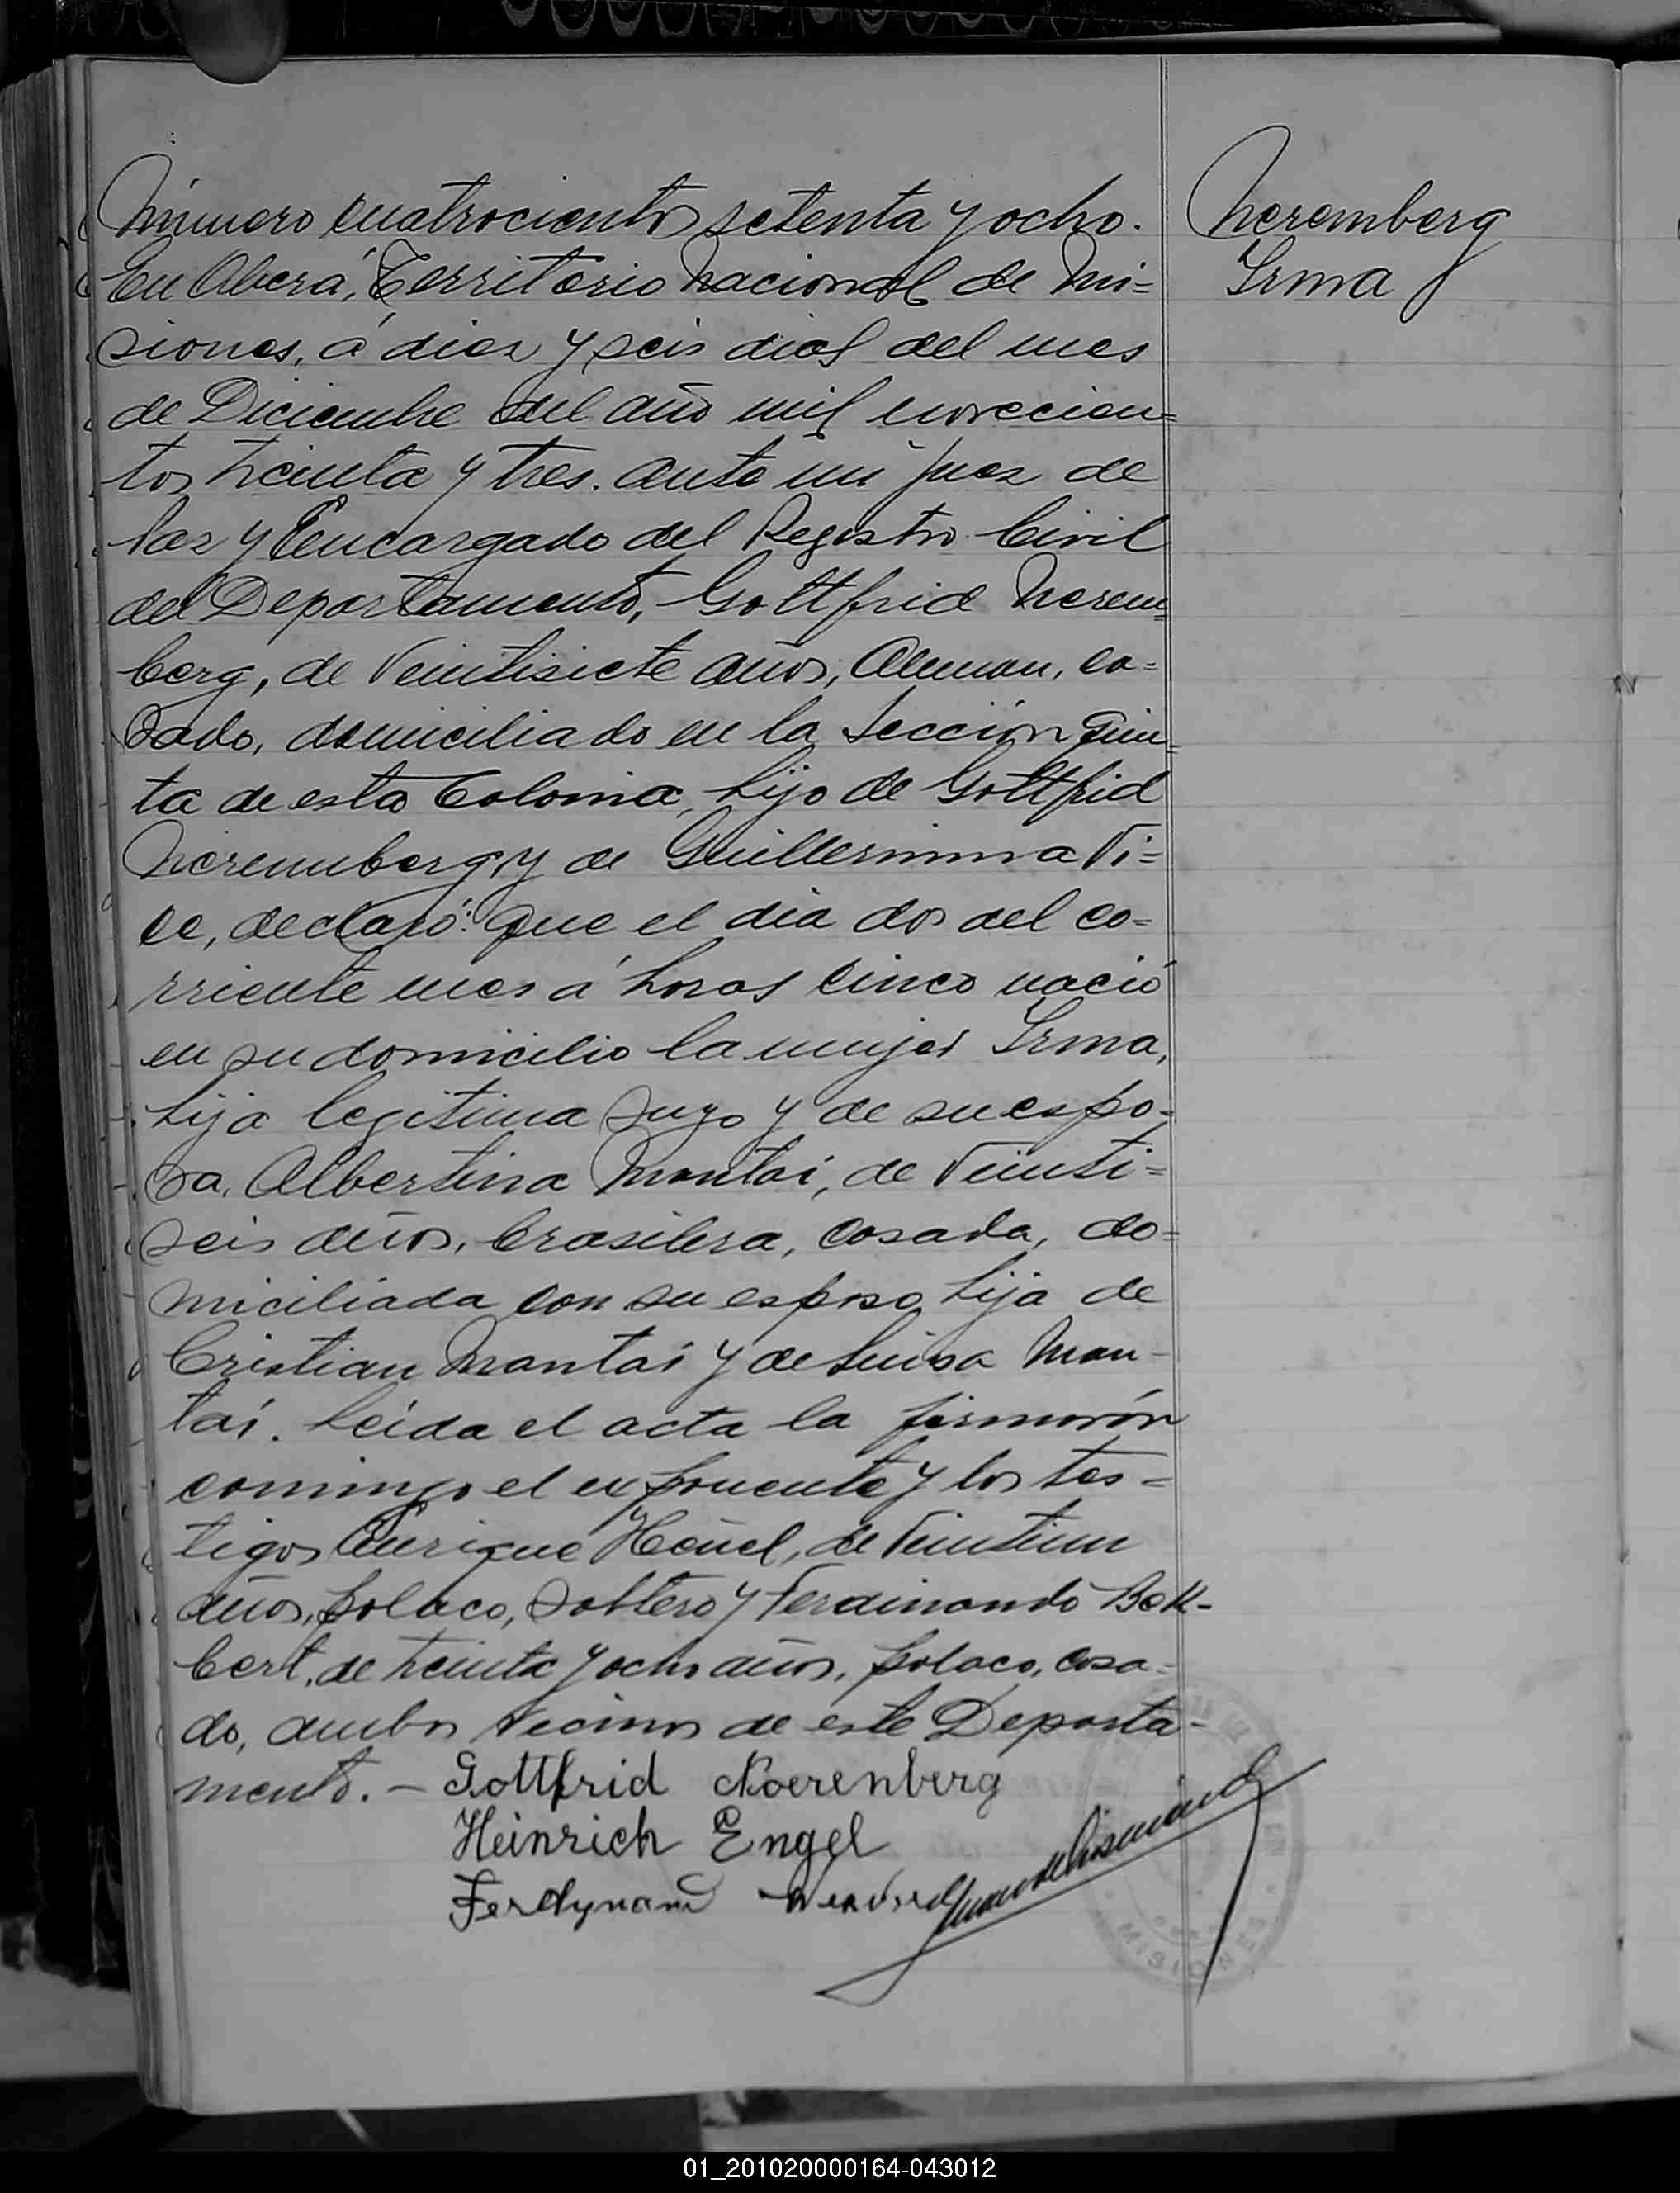 Número cuatrocientos setenta y ocho.
En Oberá, Territorio Nacional de Mi=
siones, á diez y seis dias del mes
de Diciembre del año mil novecien=
tos treinta y tres. ante mi Juez de
Paz y Encargado del Registro Civil
del Departamento, Gottfrid Nerem=
berg, de Veintisiete años, Aleman, ca=
sado, domiciliado en la Sección Quin=
ta de esta Colonia, hijo de Gottfrid
Neremberg y de Guillermina Vi=
ce, declaró: que el dia dos del co=
rriente mes á horas cinco nació
en su domicilio la mujer Irma,
hija legitima suya y de su espo=
sa, Albertina Mantai, de Veinti=
seis años, brasilera, casada, do=
miciliada con su esposo, hija de
Cristian Mantai y de Luisa Man-
tai. Leida el acta la firmarón
conmigo el exponente y los tes=
tigos Enrique Henel, de Veintiun
años, polaco, soltero y Ferdinando
bert, de treinta y ocho años, polaco, casa-
do, ambos vecinos de este Departa-
mento. - Gottfrid Noerenberg
Heinrich Engel
Ferdynand
Neremberg
Irma
MISIONES
01_201020000164-043012